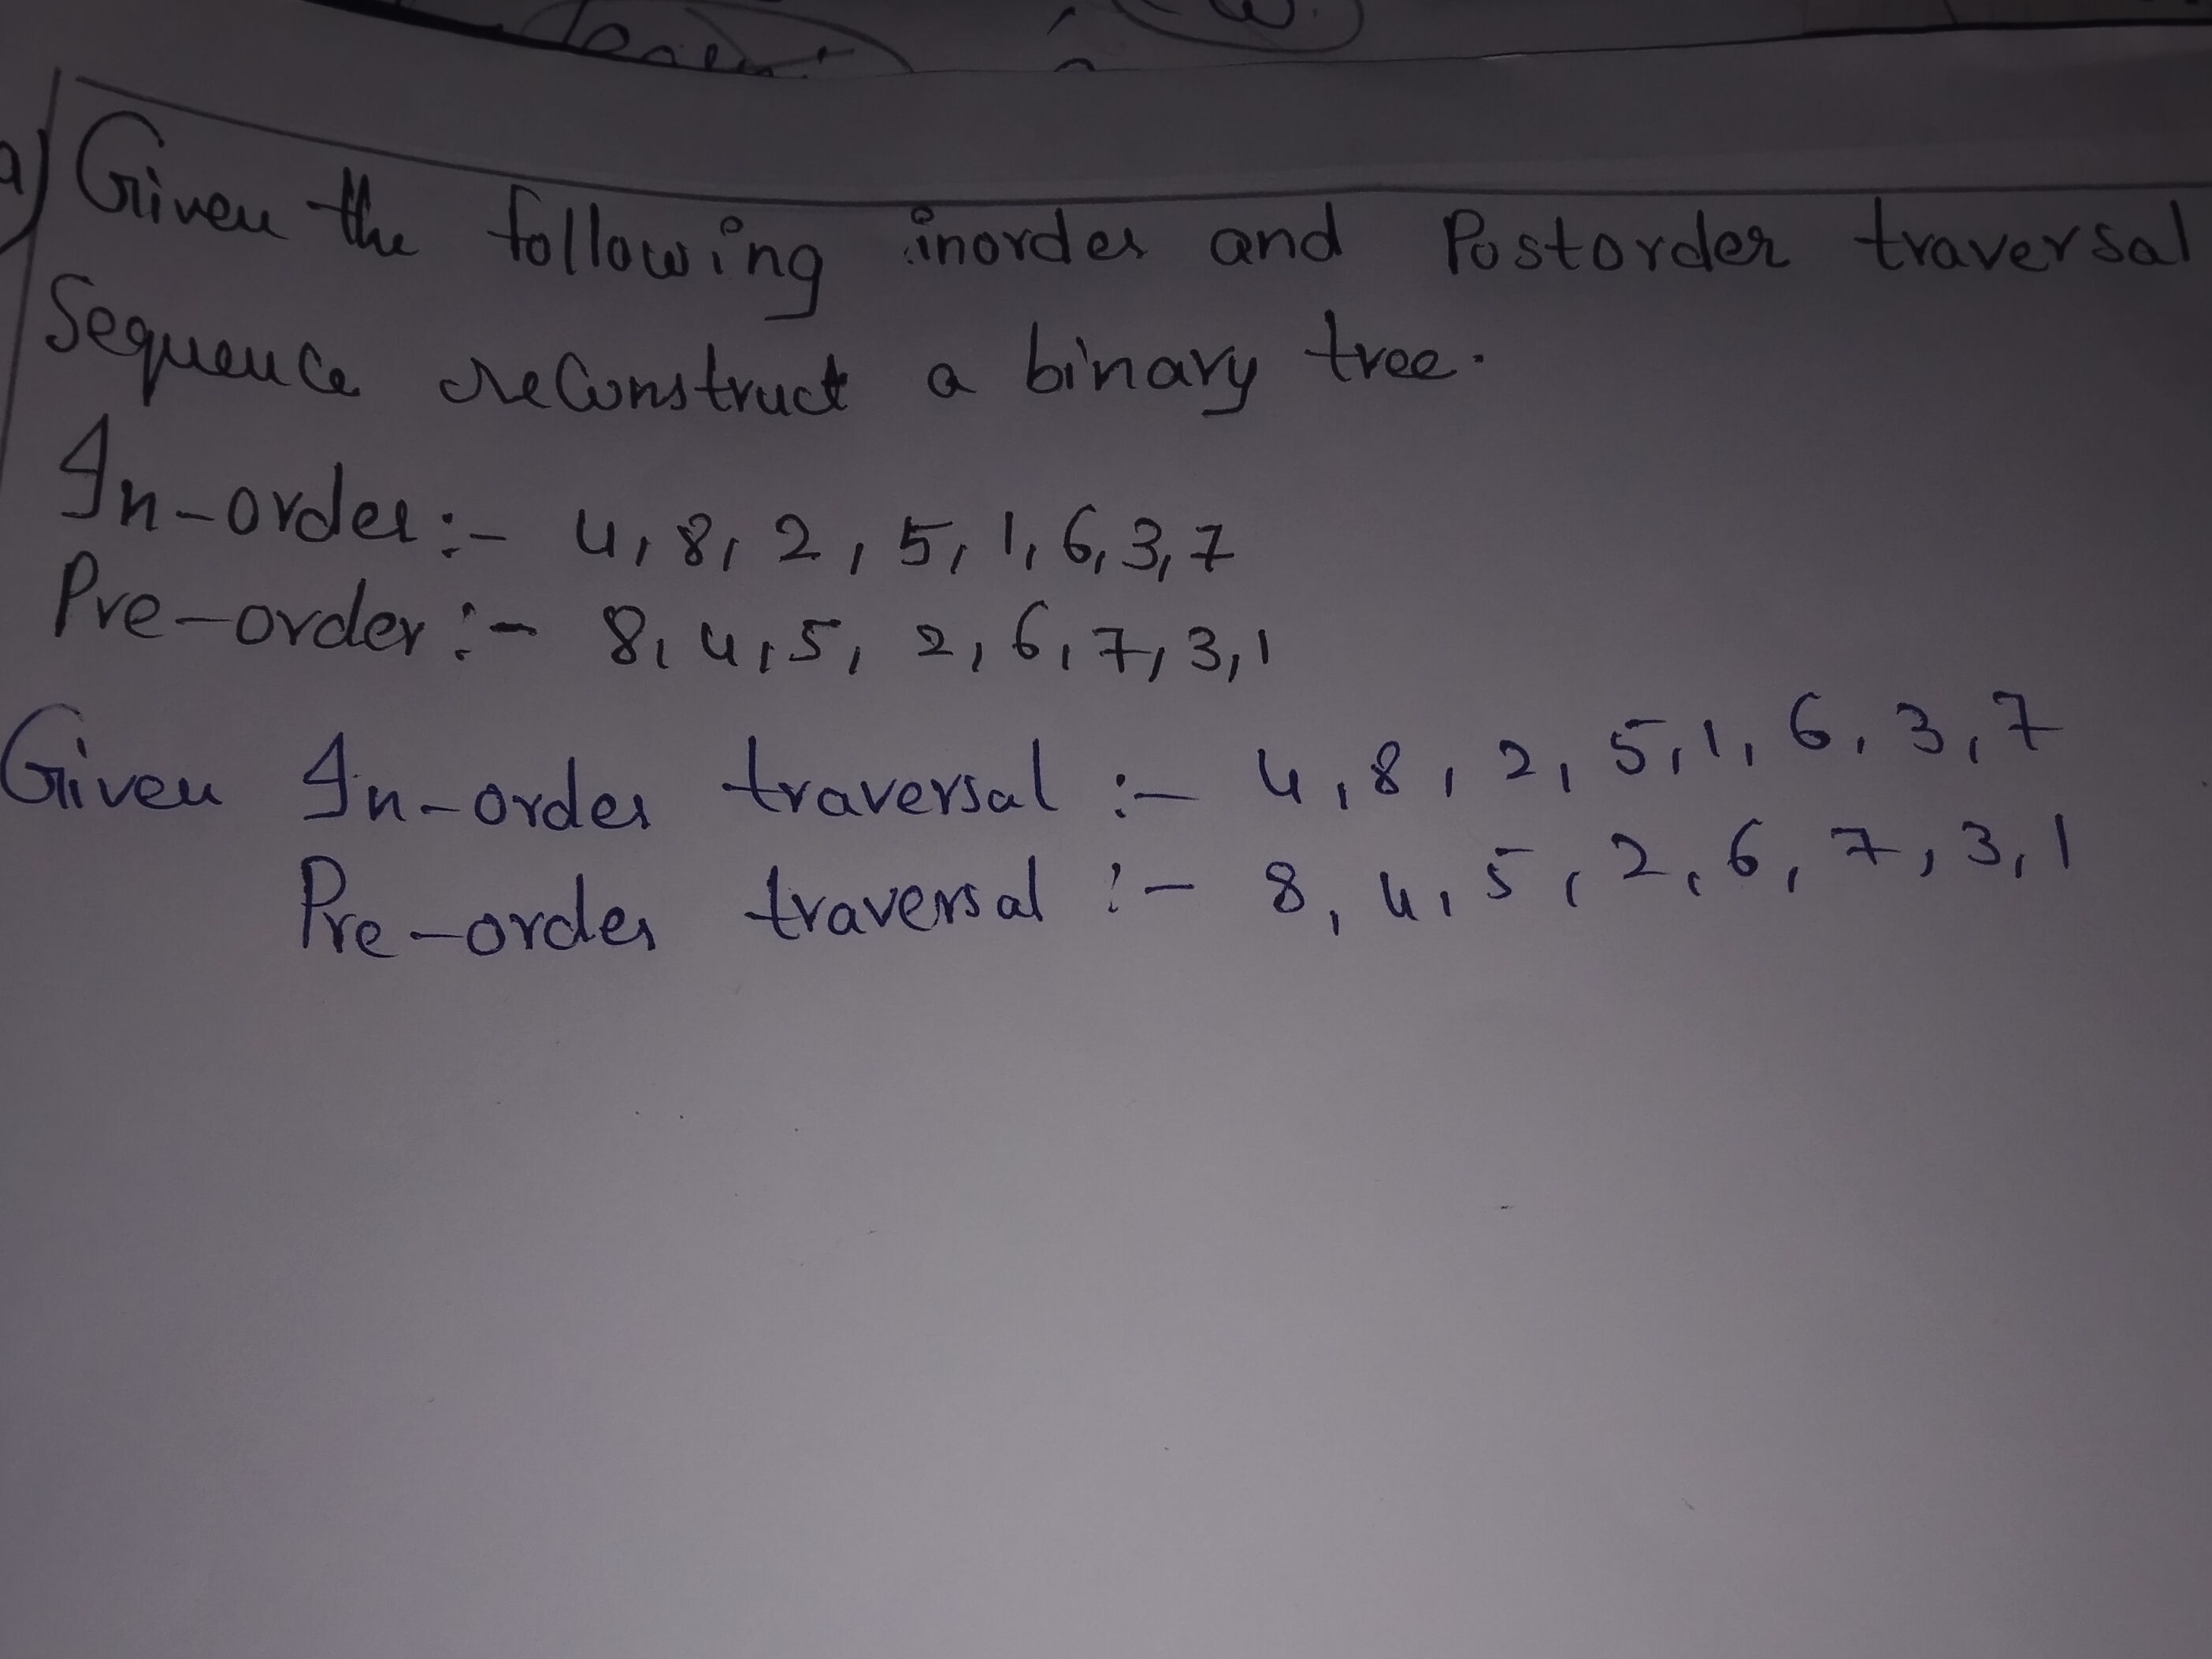 a) Given the following inorder and Postorder traversal
Sequence reconstruct a binary tree.
In-order:- 4, 8, 2, 5, 1, 6, 3, 7
Pre-order:- 8, 4, 5, 2, 6, 7, 3, 1
Given In-order traversal :- 4, 8, 2, 5, 1, 6, 3, 7
Pre-order traversal :- 8, 4, 5, 2, 6, 7, 3, 1